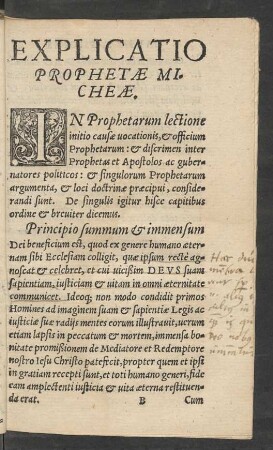 EXPLICATIO
PROPHETÆ MI-
CHEÆ.
IN Prophetarum lectione
initio causæ vocationis, & officium
Prophetarum: & discrimen inter
Prophetas et Apostolos ac guber-
natores politicos: & singulorum Prophetarum
argumenta, & loci doctrinæ præcipui, conside-
randi sunt. De singulis igitur hisce capitibus
ordine & breuiter dicemus.
Principio summum & immensum
Dei beneficium est, quod ex genere humano æter-
nam sibi Ecclesiam colligit, quæ ipsum rectè ag-
noscat & celebret, et cui uicissim DEVS suam
sapientiam, iusticiam & uitam in omni æternitate
communicet. Ideoq; non modo condidit primos
Homines ad imaginem suam & sapientiæ Legis ac
iusticiæ suæ radijs mentes eorum illustrauit, uerum
etiam lapsis in peccatum & mortem, immensa bo-
nitate promissionem de Mediatore et Redemptore
nostro Iesu Christo patefecit, propter quem et ipsi
in gratiam recepti sunt, et toti humano generi, fide
eam amplectenti iusticia & vita æterna restituen-
da erat.
B Cum